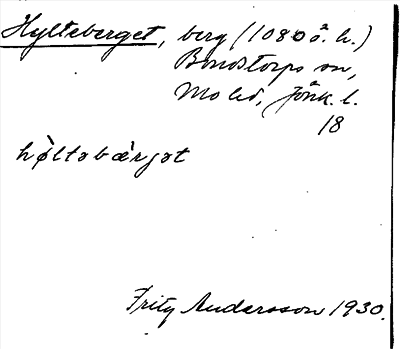 Hylteberget, berg (1080 ö. h.)
Bondstorps sn,
Mo hd, Jönk. l.
18
hø̀ltəbæ̀rjət
Fritz Andersson 1930.